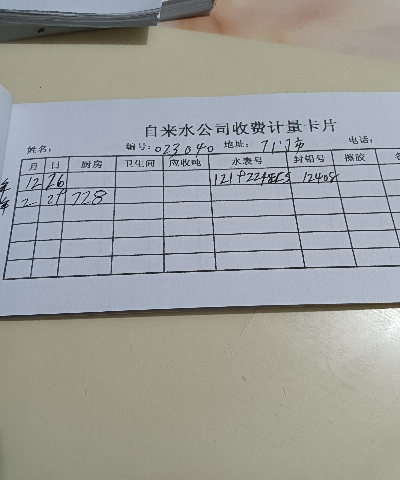 自来水公司收费计量卡片
姓名: 编号: 023040 地址: 电话:
月 日 厨房 卫生间 应收吨 水表号 封铅号 橡胶
12 26 12408
2 728